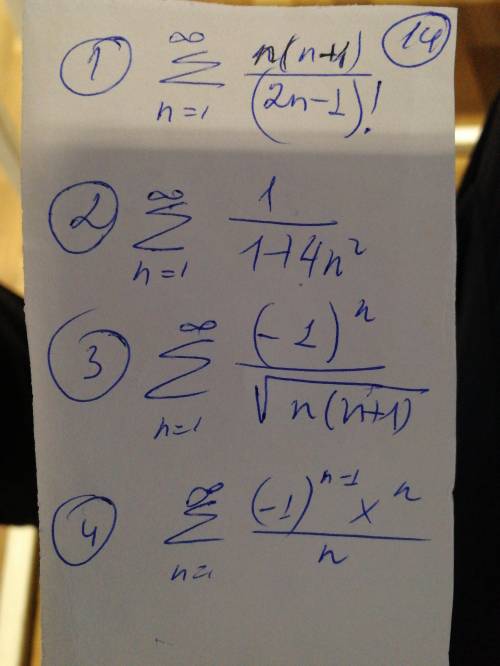 14
1 ∞ ∑ n=1 n(n+1) / (2n-1)!
2 ∞ ∑ n=1 1 / 1+4n²
3 ∞ ∑ n=1 (-1)ⁿ / √n(n+1)
4 ∞ ∑ n=1 (-1)ⁿ⁻¹ xⁿ / n